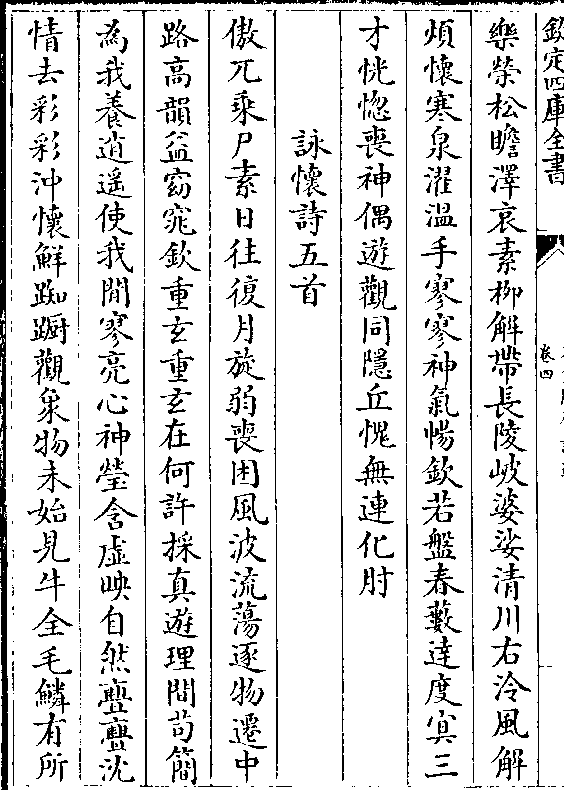 欽定四庫全書
卷四
樂榮松瞻澤哀素栁解帶長陵岥婆娑清川右泠風解
煩懷寒泉濯温手寥寥神氣暢欽若盤春藪達度冥三
才恍惚喪神偶遊觀同隱丘愧無連化肘
詠懷詩五首
傲兀乗尸素日往復月旋弱喪困風波流蕩逐物遷中
路高韻益窈窕欽重玄重玄在何許採真遊理間苟簡
為我養逍遥使我閒寥亮心神瑩含虚映自然亹亹沈
情去彩彩沖懷鮮踟蹰觀象物未始見牛全毛鱗有所